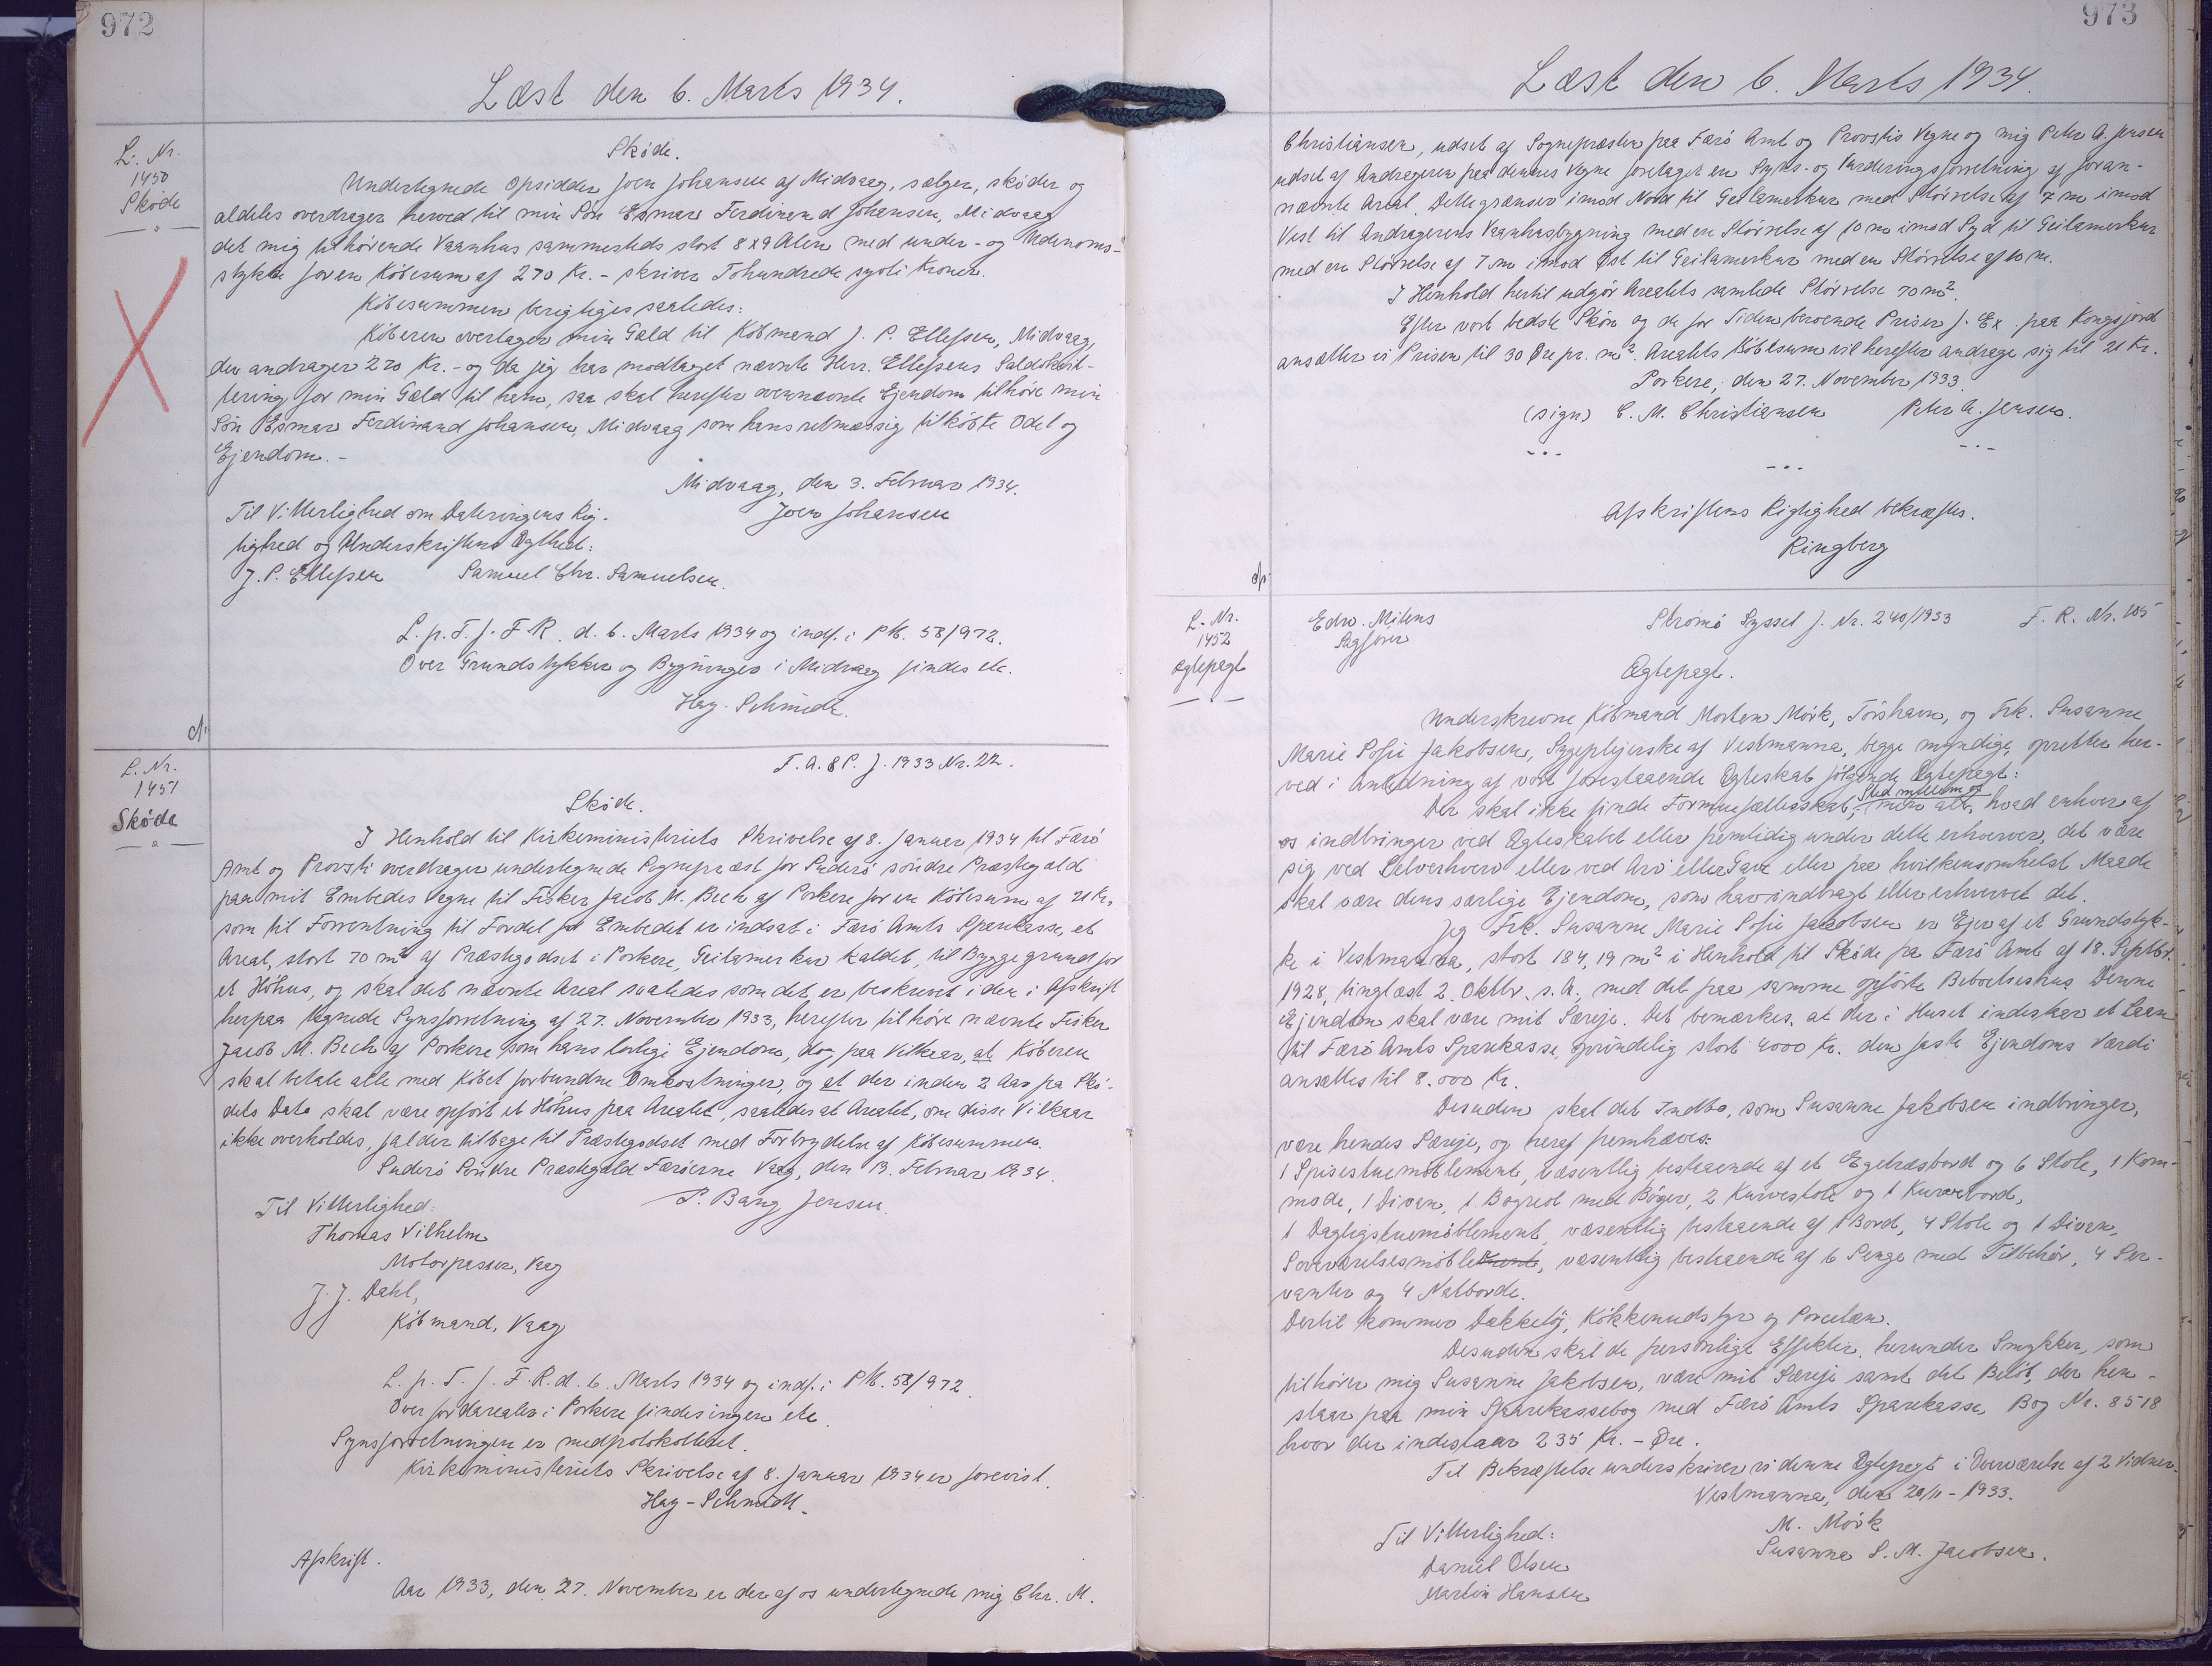 972
Læst den 6. Marts 1934.
L. Nr.
1450
Skøde
Skøde.
Undertegnede Opsidder Joen Johansen af Midvaag, sælger, skøder og
aldeles overdrager herved til min Søn Esmar Ferdinand Johansen, Midvaag
det mig tilhørende Vaanhus sammesteds stort 8x9 Alen med under- og Udenoms-
stykke for en Købesum af 270 Kr. - skriver Tohundrede syvti Kroner.
Købesummen berigtiges saaledes:
Køberen overtager min Gæld til Købmand J. P. Ellefsen, Midvaag,
den andrager 270 Kr. - og da jeg har modtaget nævnte Herr. Ellefsens Saldokvit-
tering for min Gæld til ham, saa skal herefter ovennævnte Ejendom tilhøre min
Søn Esmar Ferdinand Johansen, Midvaag som hans retmæssig tilkøbte Odel og
Ejendom. -
Midvaag, den 3. Februar 1934.
Joen Johansen
Til Vitterlighed om Dateringens Rig-
tighed og Underskriftens Ægthed:
J. P. Ellefsen Samuel Chr. Samuelsen.
L. p. T. f. F. R. d. 6. Marts 1934 og indf. i PM. 58/972.
Over Grundstykker og Bygninger i Midvaag findes etc.
Hay-Schmidt.
L. Nr.
1451
Skøde
F. A. & P. J. 1933 Nr. 22.
Skøde.
I Henhold til Kirkeministeriets Skrivelse af 8. Januar 1934 til Færø
Amt og Provsti overdrager undertegnede Sognepræst for Suderø søndre Præstegæld
paa mit Embedes Vegne til Fisker Jacob M. Bech af Porkere for en Købesum af 21 Kr.,
som til Forrentning til Fordel for Embedet er indsat i Færø Amts Sparekasse, et
Areal, stort 70 m² af Præstegodset i Porkere, Geilamerkur kaldet, til Byggegrund for
et Høhus, og skal det nævnte Areal saaledes som det er beskrevet i den i Afskrift
herpaa tegnede Synsforretning af 27. November 1933, herefter tilhøre nævnte Fisker
Jacob M. Bech af Porkere som hans lovlige Ejendom, dog paa Vilkaar, at Køberen
skal betale alle med Købet forbundne Omkostninger, og at der inden 2 Aar fra Skø-
dets Dato skal være opført et Høhus paa Arealet, saaledes at Arealet, om disse Vilkaar
ikke overholdes, falder tilbage til Præstegodset med Fortrydelse af Købesummen.
Suderø Søndre Præstegæld Færøerne Vaag, den 13. Februar 1934.
P. Bang Jensen.
Til Vitterlighed:
Thomas Vilhelm
Motorpasser, Vaag
J. J. Dahl,
Købmand, Vaag
L. p. T. f. F. R. d. 6. Marts 1934 og indf. i PM. 58/972.
Over jordarealer i Porkere findes ingen etc.
Synsforretningen er medprotokolleret.
Kirkeministeriets Skrivelse af 8. Januar 1934 er forevist.
Hay-Schmidt.
Afskrift.
Aar 1933, den 27. November er der af os undertegnede mig Chr. M.
973
Læst den 6. Marts 1934.
Christiansen, udset af Sognepræsten paa Færø Amt og Provstis Vegne og mig Peter A. Jensen
udset af Andrageren paa dennes Vegne foretaget en Syns- og Vurderingsforretning af foran-
nævnte Areal. Dette grænser imod Nord til Geilamerkur med Størrelse af 7 m imod
Vest til Andragerens Vaanhusbygning med en Størrelse af 10 m imod Syd til Geilamerkur
med en Størrelse af 7 m imod Øst til Geilamerkur med en Størrelse af 10 m.
I Henhold hertil udgør Arealets samlede Størrelse 70 m².
Efter vort bedste Skøn og de for Tiden beroende Priser f. Ex. paa Kongsjord
ansætter vi Prisen til 30 Øre pr. m². Arealets Købesum vil herefter andrage sig til 21 Kr.
Porkere, den 27. November 1933.
(sign) C. M. Christiansen Peter A. Jensen.
Afskriftens Rigtighed bekræftes.
Ringberg
L. Nr.
1452
Ægtepagt
Edw. Mitens
Sagfører
Strømø Syssel J. Nr. 240/1933 F. R. Nr. 105
Ægtepagt.
Underskrevne Købmand Morten Mørk, Tórshavn, og Frk. Susanne
Marie Sofie Jakobsen, Sygeplejerske af Vestmanna, begge myndige, opretter her-
ved i Anledning af vort forestaaende Ægteskab følgende Ægtepagt:
Der skal ikke finde Formuefællesskab Sted mellem os; men alt, hvad enhver af
os indbringer ved Ægteskabet eller fremtidig under dette erhverver, det være
sig ved Selverhverv eller ved Arv eller Gave eller paa hvilkensomhelst Maade
skal være dens særlige Ejendom, som har indbragt eller erhvervet det.
Jeg Frk. Susanne Marie Sofie Jakobsen er Ejer af et Grundstyk-
ke i Vestmanna, stort 184,19 m² i Henhold til Skøde fra Færø Amt af 18. Septbr.
1928, tinglæst 2. Oktbr. s. A., med det paa samme opførte Beboelseshus Denne
Ejendom skal være mit Særeje. Det bemærkes, at der i Huset indestaar et Laan
til Færø Amts Sparekasse, oprindelig stort 4000 Kr. den faste Ejendoms Værdi
ansættes til 8.000 Kr.
Desuden skal det Indbo, som Susanne Jakobsen indbringer,
være hendes Særeje, og heraf fremhæves:
1 Spisestuemøblement, væsentlig bestaaende af et Egetræsbord og 6 Stole, 1 Kom-
mode, 1 Divan, 1 Bogreol med Bøger, 2 Kurvestole og 1 Kurvebord,
1 Dagligstuemøblement, væsentlig bestaaende af 1 Bord, 4 Stole og 1 Divan,
Soveværelsesmøblement, væsentlig bestaaende af 6 Senge med Tilbehør, 4 Ser-
vanter og 4 Natborde.
Dertil kommer Dækketøj, Køkkenudstyr og Porcelæn.
Desuden skal de personlige Effekter, herunder Smykker, som
tilhører mig Susanne Jakobsen, være mit Særeje samt det Beløb, der hen-
staar paa min Sparekassebog med Færø Amts Sparekasse, Bog Nr. 8518
hvor der indestaar 235 Kr. - Øre.
Til Bekræftelse underskriver vi denne Ægtepagt i Overværelse af 2 Vidner.
Vestmanna, den 20/11 - 1933.
M. Mørk
Susanna S. M. Jacobsen.
Til Vitterlighed:
Daniel Olsen
Martin Hansen